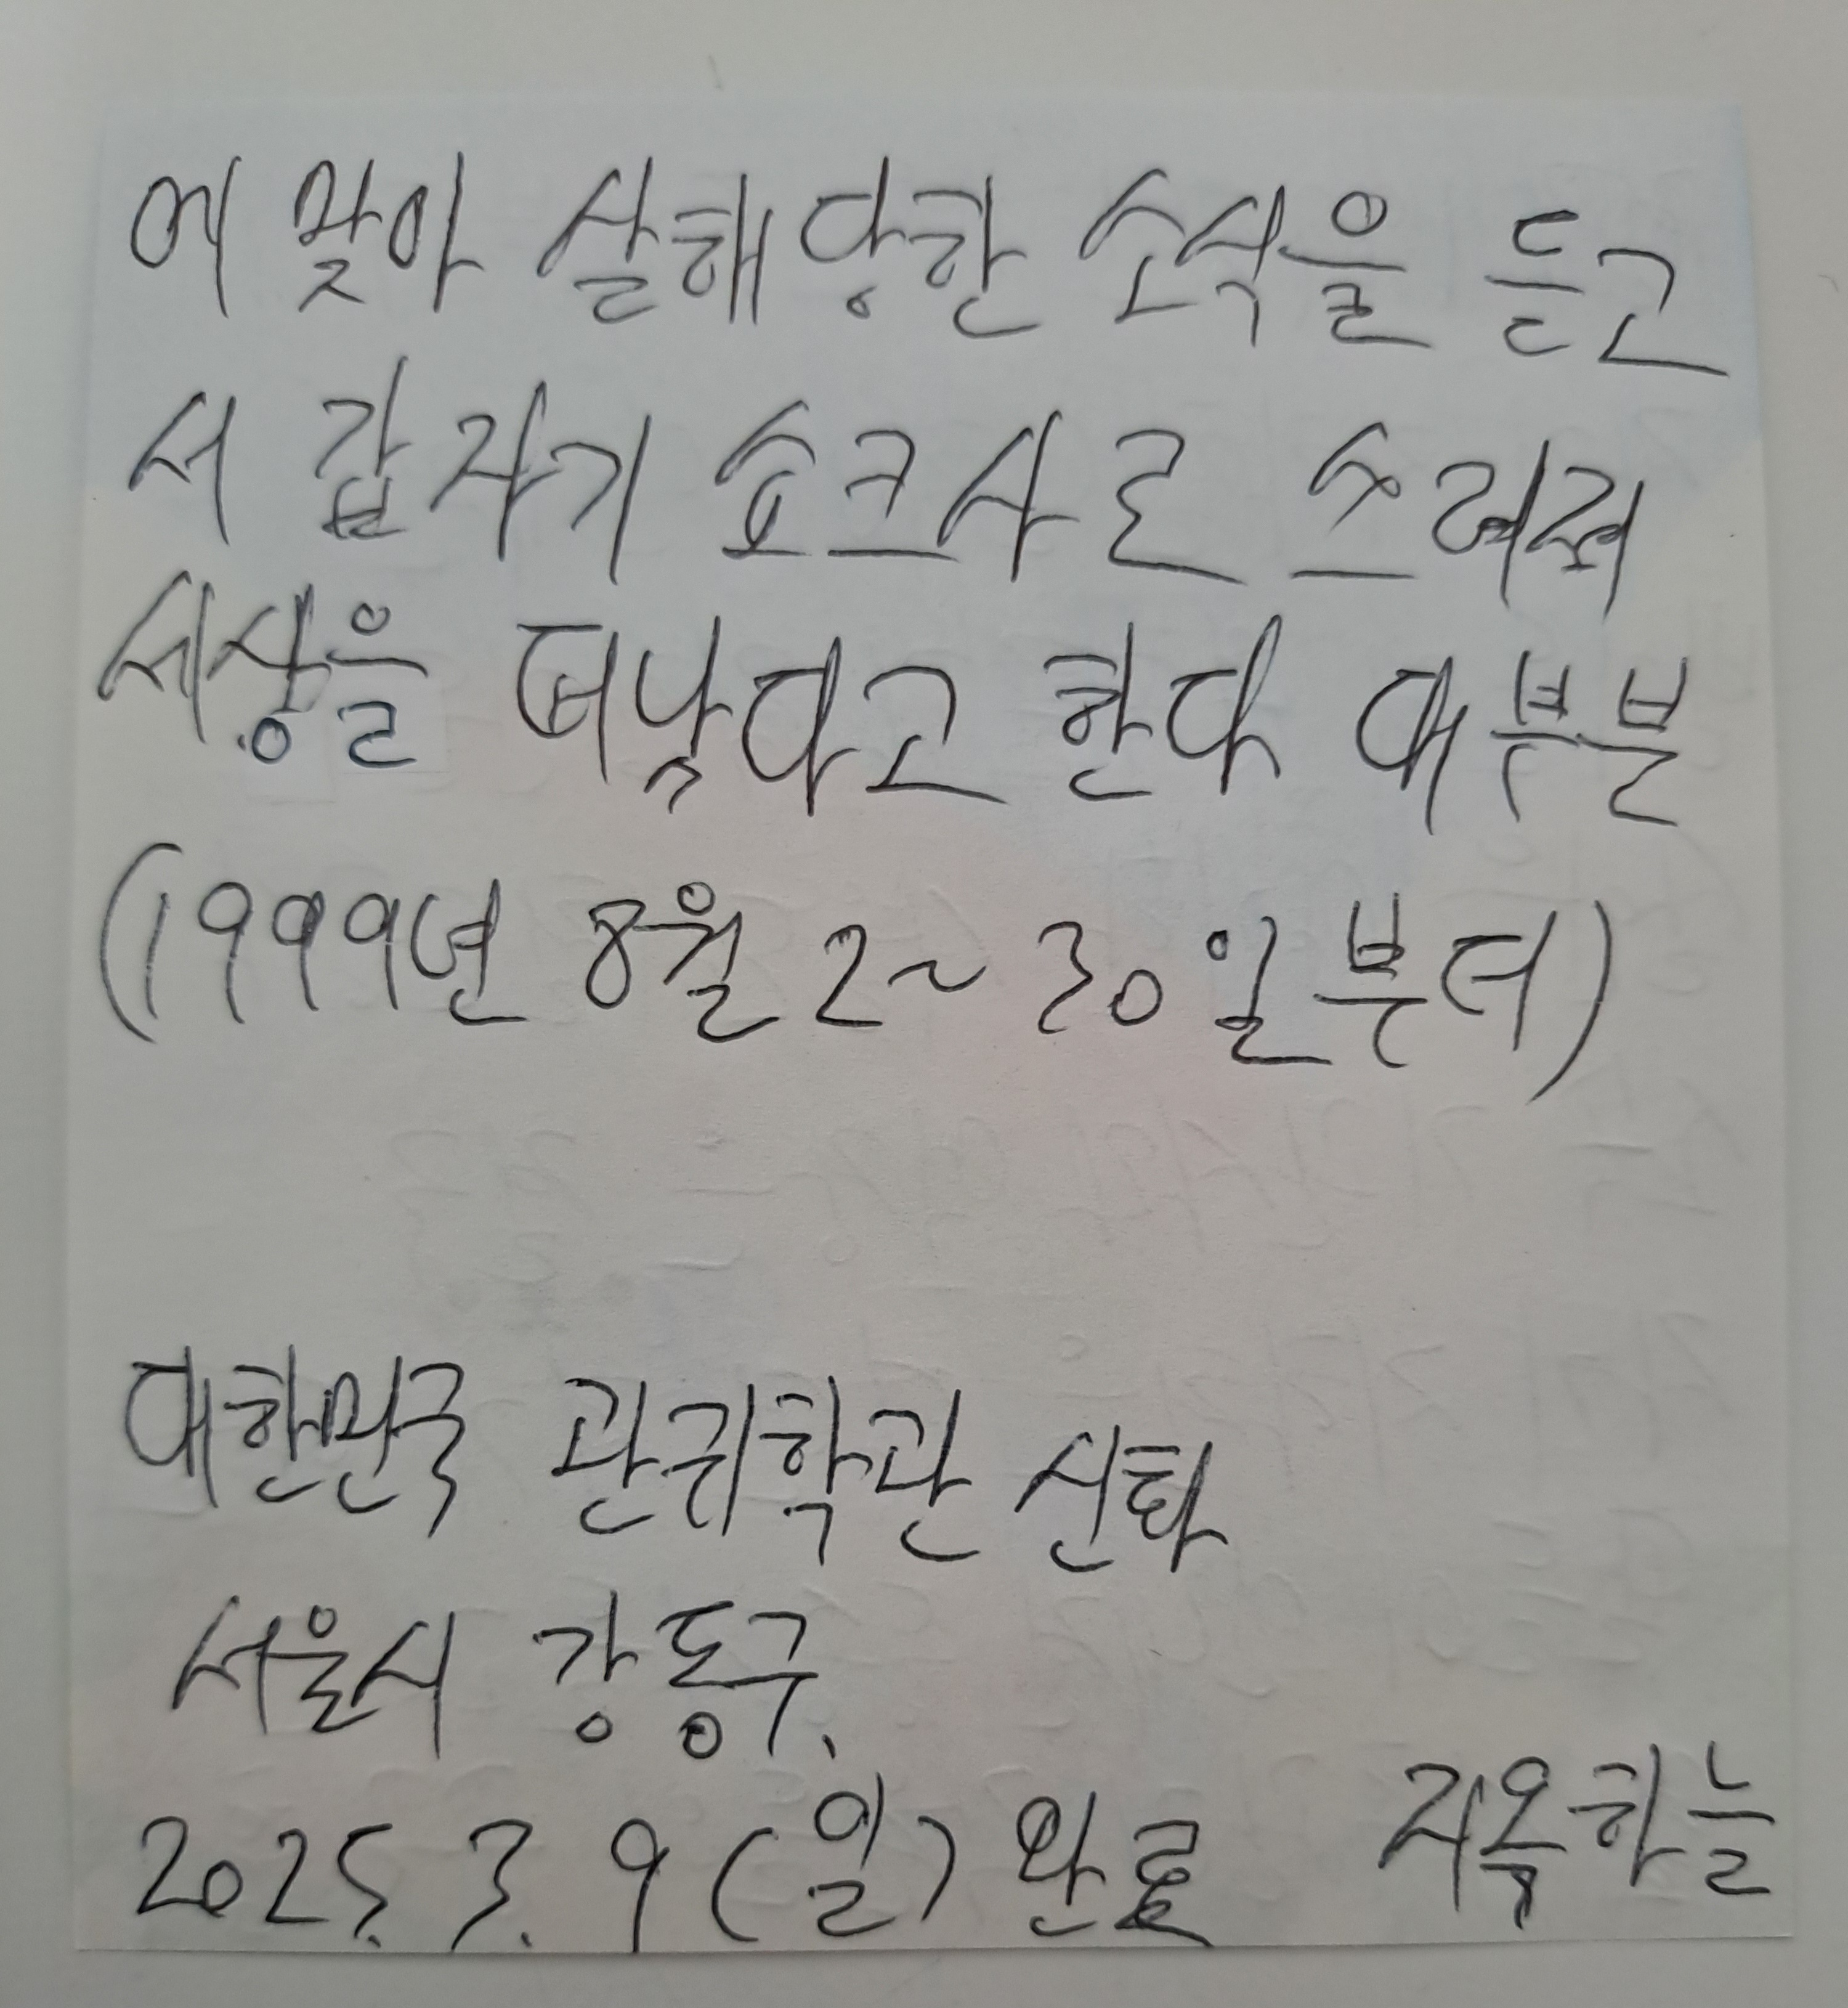 에 맞아 살해당한 소식을 듣고
서 갑자기 쇼크사로 쓰러져
세상을 떠났다고 한다 대부분
(1999년 8월 2~30일부터)
대한민국 관귀학관 신화
서울시 강동구.
2025. 3. 9 (일) 완료 지옥하늘